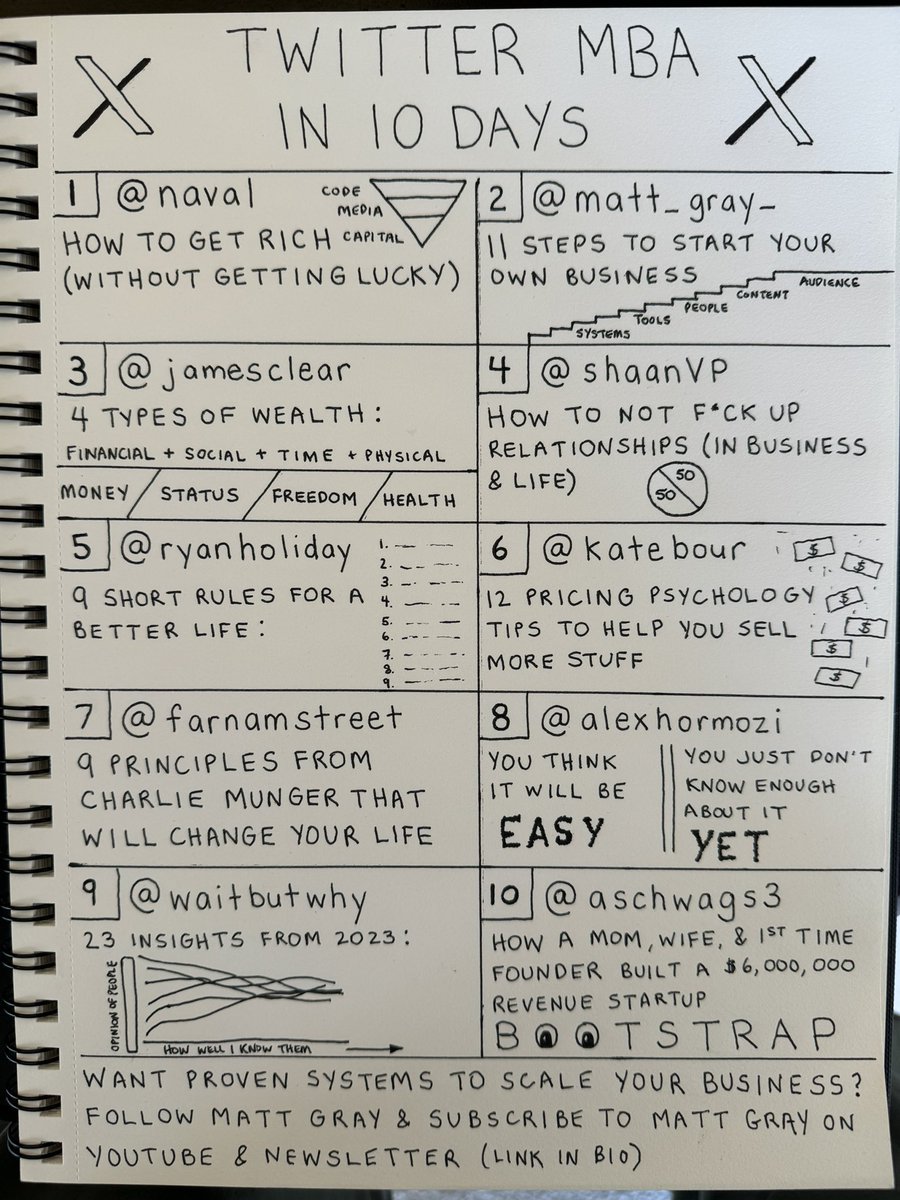 TWITTER MBA
IN 10 DAYS
1 @naval
HOW TO GET RICH
(WITHOUT GETTING LUCKY)
CODE
MEDIA
CAPITAL
2 @matt_gray_
11 STEPS TO START YOUR
OWN BUSINESS
SYSTEMS
TOOLS
PEOPLE
CONTENT
AUDIENCE
3 @jamesclear
4 TYPES OF WEALTH:
FINANCIAL + SOCIAL + TIME + PHYSICAL
MONEY / STATUS / FREEDOM / HEALTH
4 @shaanVP
HOW TO NOT F*CK UP
RELATIONSHIPS (IN BUSINESS
& LIFE)
50
50
5 @ryanholiday
9 SHORT RULES FOR A
BETTER LIFE:
1.
2.
3.
4.
5.
6.
7.
8.
9.
6 @katebour
12 PRICING PSYCHOLOGY
TIPS TO HELP YOU SELL
MORE STUFF
$
$
$
$
$
$
7 @farnamstreet
9 PRINCIPLES FROM
CHARLIE MUNGER THAT
WILL CHANGE YOUR LIFE
8 @alexhormozi
YOU THINK
IT WILL BE
EASY
YOU JUST DON'T
KNOW ENOUGH
ABOUT IT
YET
9 @waitbutwhy
23 INSIGHTS FROM 2023:
OPINION OF PEOPLE
HOW WELL I KNOW THEM
10 @aschwags3
HOW A MOM, WIFE, & 1ST TIME
FOUNDER BUILT A $6,000,000
REVENUE STARTUP
BOOTSTRAP
WANT PROVEN SYSTEMS TO SCALE YOUR BUSINESS?
FOLLOW MATT GRAY & SUBSCRIBE TO MATT GRAY ON
YOUTUBE & NEWSLETTER (LINK IN BIO)